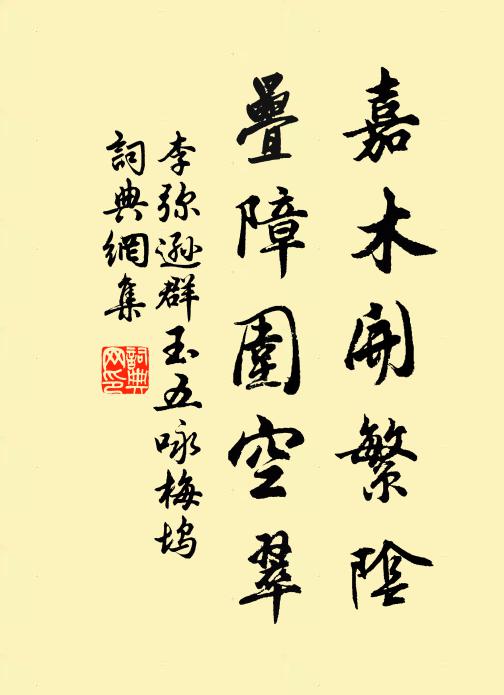 嘉木開繁陰
疊障圍空翠
李弥遜群玉五咏梅塢
詞典網集
詞典網印